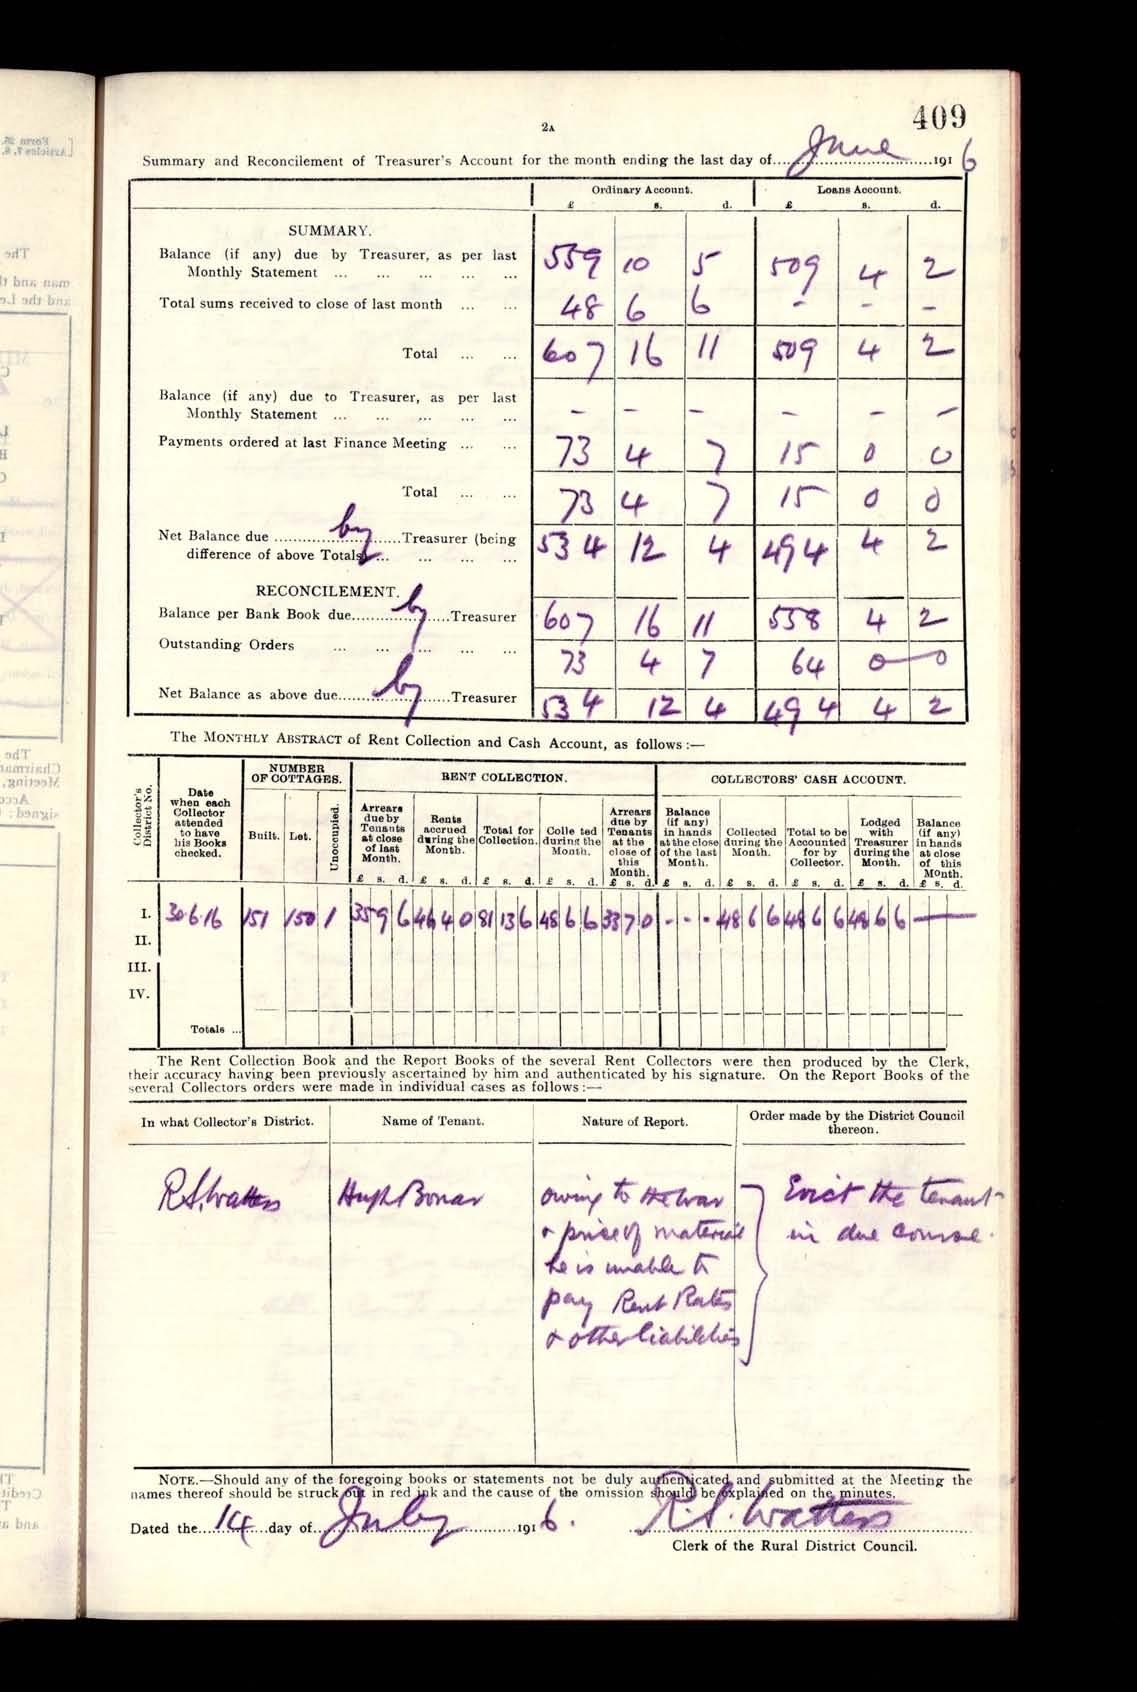 409
2A
Summary and Reconcilement of Treasurer's Account for the month ending the last day of June 1916
Ordinary Account. Loans Account.
£ s. d. £ s. d.
SUMMARY.
Balance (if any) due by Treasurer, as per last
Monthly Statement ... ... ... ... ... 559 10 5 509 4 2
Total sums received to close of last month ... ... 48 6 6 - - -
Total ... ... 607 16 11 509 4 2
Balance (if any) due to Treasurer, as per last
Monthly Statement ... ... ... ... ... - - - - - -
Payments ordered at last Finance Meeting ... ... 73 4 7 15 0 0
Total ... ... 73 4 7 15 0 0
Net Balance due by Treasurer (being
difference of above Totals) ... ... ... ... 534 12 4 494 4 2
RECONCILEMENT.
Balance per Bank Book due by Treasurer 607 16 11 558 4 2
Outstanding Orders ... ... ... ... ... 73 4 7 64 0 0
Net Balance as above due by Treasurer 534 12 4 494 4 2
The MONTHLY ABSTRACT of Rent Collection and Cash Account, as follows :—
Collector's District No.
Date when each Collector attended to have his Books checked.
NUMBER OF COTTAGES.
Built. Let. Unoccupied.
RENT COLLECTION.
Arrears due by Tenants at close of last Month.
Rents accrued during the Month.
Total for Collection.
Colle ted during the Month.
Arrears due by Tenants at the close of this Month.
COLLECTORS' CASH ACCOUNT.
Balance (if any) in hands at the close of the last Month.
Collected during the Month.
Total to be Accounted for by Collector.
Lodged with Treasurer during the Month.
Balance (if any) in hands at close of this Month.
£ s. d. £ s. d. £ s. d. £ s. d. £ s. d. £ s. d. £ s. d. £ s. d. £ s. d. £ s. d.
I. 30·6·16 151 150 1 35 9 6 46 4 0 81 13 6 48 6 6 33 7 0 - - - 48 6 6 48 6 6 48 6 6 —
II.
III.
IV.
Totals ...
The Rent Collection Book and the Report Books of the several Rent Collectors were then produced by the Clerk,
their accuracy having been previously ascertained by him and authenticated by his signature. On the Report Books of the
several Collectors orders were made in individual cases as follows :—
In what Collector's District. Name of Tenant. Nature of Report. Order made by the District Council
thereon.
R.S. Watters Hugh Bonar owing to the war Evict the tenant
& price of material in due course.
he is unable to
pay Rent Rates
& other liabilities
NOTE.—Should any of the foregoing books or statements not be duly authenticated and submitted at the Meeting the
names thereof should be struck out in red ink and the cause of the omission should be explained on the minutes.
Dated the 14 day of July 1916. R.S. Watters
Clerk of the Rural District Council.